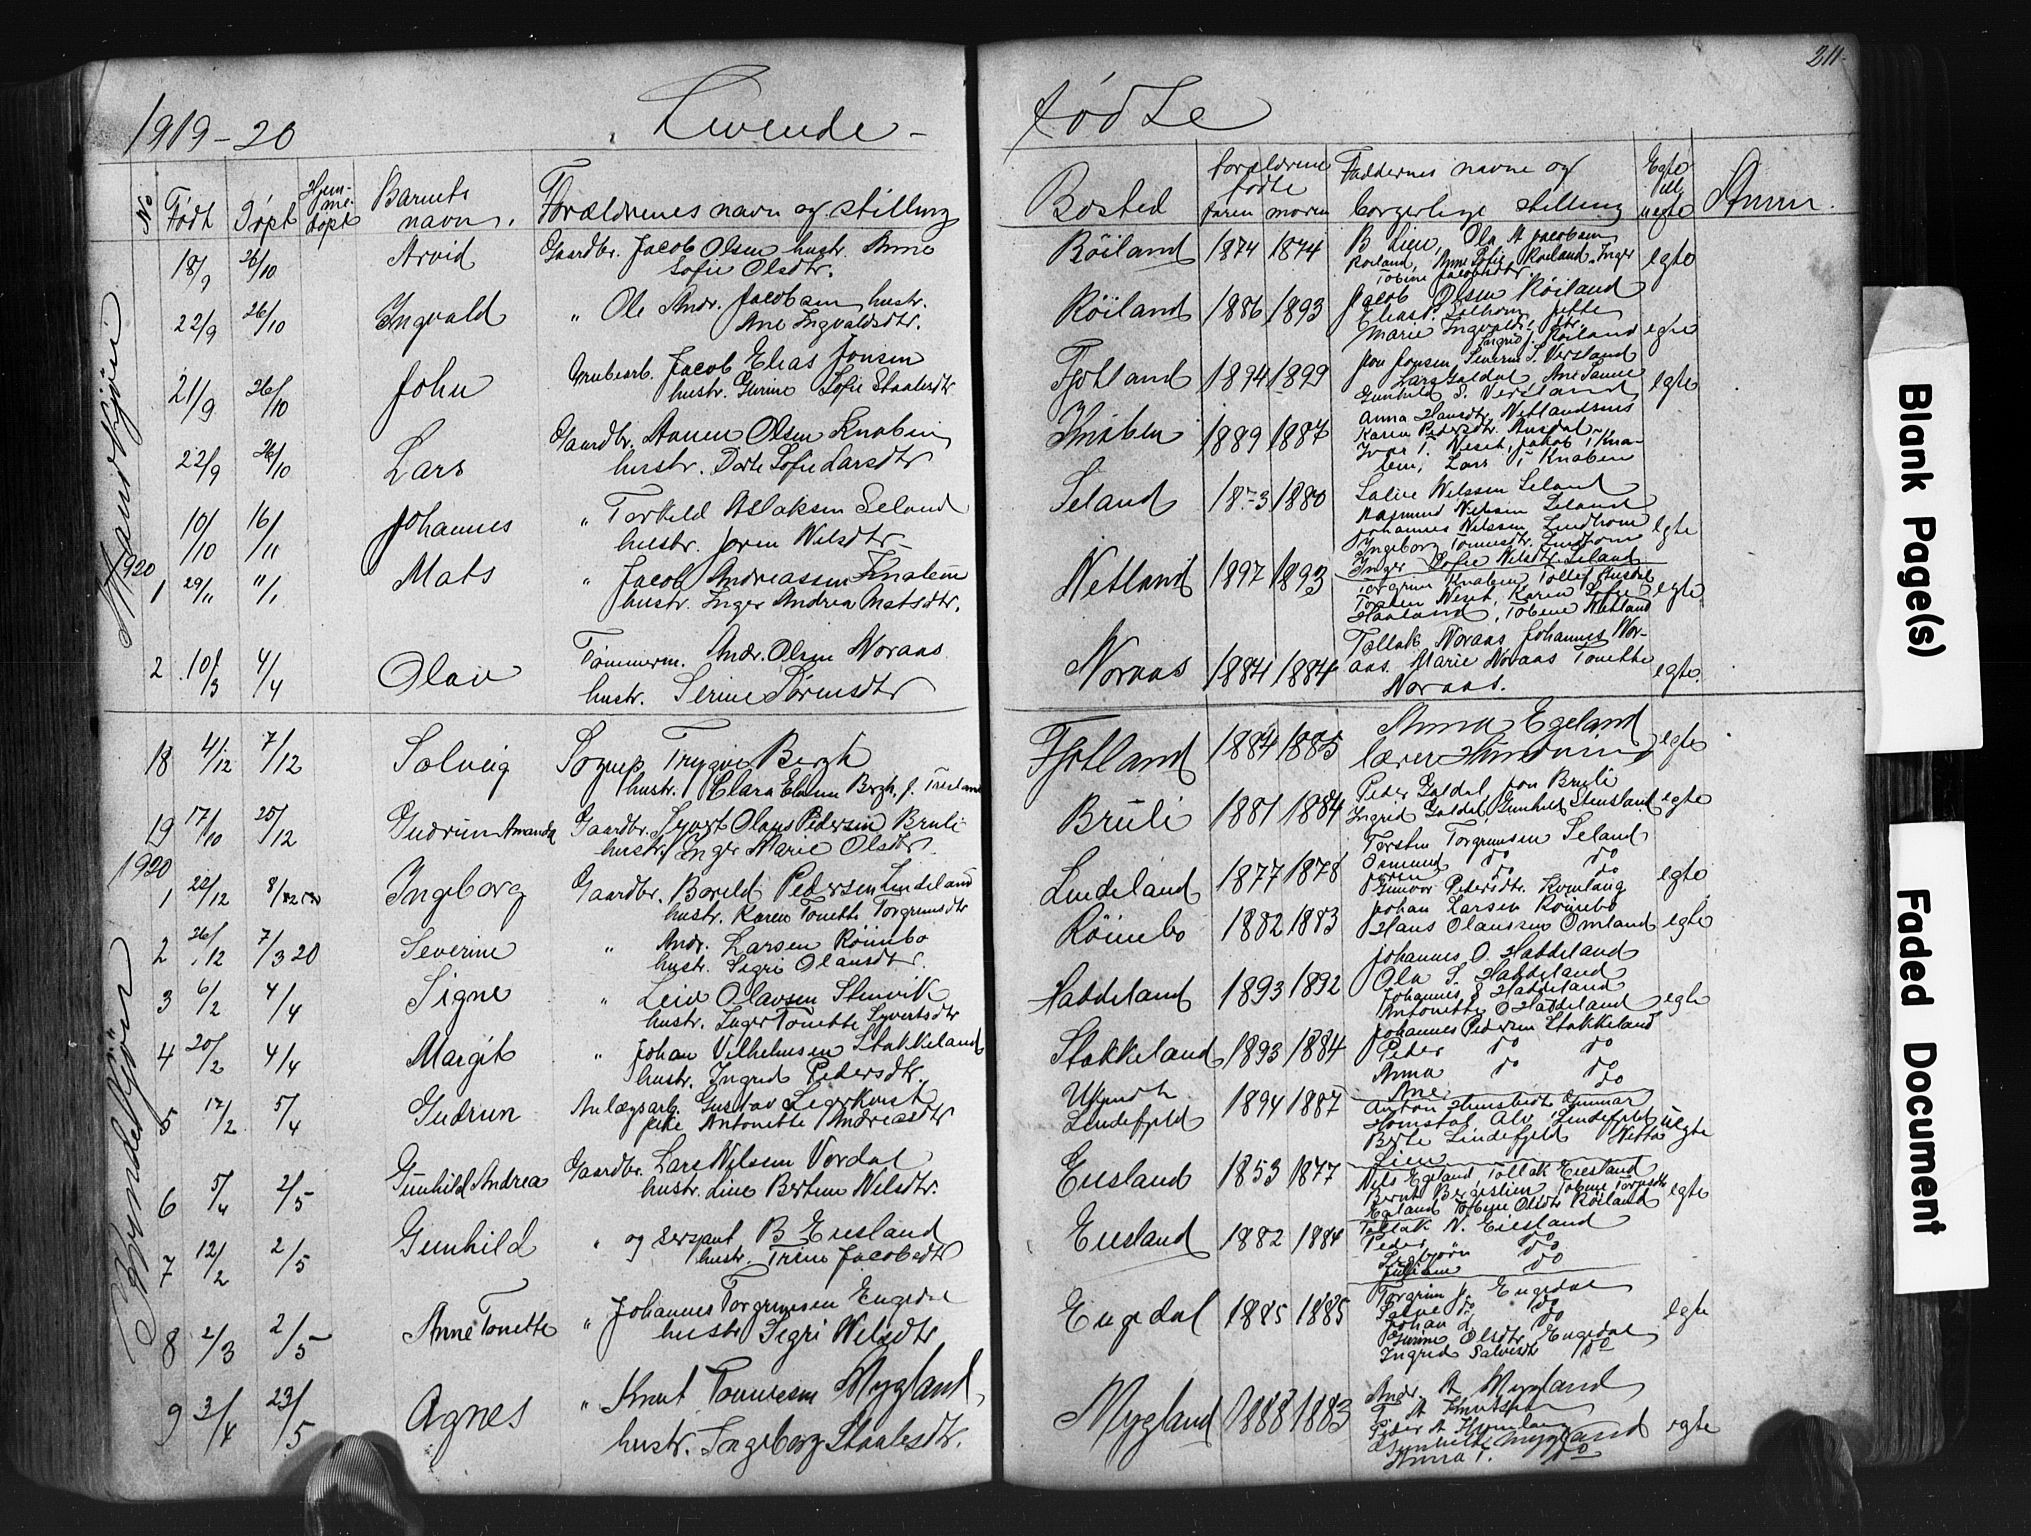 211.
1919-20 Levende- fødte
No Født Døpt Hjem-me-døpt Barnets navn. Forældrenes navn og stilling Bosted Forældrene fødte faren moren Faddernes navne og borgerlige stilling Egte ell. uegte Anm.
Mandkjøn
18/9 26/10 Arvid Gaardbr. Jacob Olsen hustr. Anne Sofie Olsdtr. Röiland 1874 1874 egte
22/9 26/10 Ingvald " Ole Andr. Jacobsen hustr. Ane Ingvaldsdtr. Röiland 1886 1893 Jacob Olsen Röiland egte
21/9 26/10 John Grubearb. Jacob Elias Jonsen hustr. Gurine Sofie Staalesdtr Fjotland 1894 1899 Jon Jonsen, Severin S. Versland Gunhild S. Versland egte
22/9 26/10 Lars Gaardbr. Aanen Olsen Knaben hustr. Dorte Sofie Larsdtr Knaben 1889 1887 Anna Hansdtr. Netlandsnes Karen Pedersdtr. Ausdal Ivar T. Neset, Jakob i Knaben, Lars i Knaben
10/10 16/11 Johannes " Torkild Aslaksen Seland hustr. Joren Nilsdtr Seland 1873 1880 Salve Nilssen Seland Rasmund Nilssen Seland Johannes Nilssen Lindhom Ingeborg Tønnesdtr. Lindhom Inger Sofie Nilsdtr. Seland egte
1920
1 29/11 11/1 Mats " Jacob Andreassen Knaben hustr. Inger Andrea Matsdtr. Netland 1897 1893 Torgrim Knaben Tollef Ausdal Torsten Neset, Karen Sofie Haaland, Tobine Netland egte
2 10/3 4/4 Olav Tømmerm. Andr. Olsen Noraas hustr. Serine Sörensdtr Noraas 1884 1884 Tollak Noraas Johannes Noraas. Marie Noraas Tonette Noraas. egte.
Kvindekjøn
18 4/12 7/12 Solveig Sognep. Trygve Bergh hustr. Clara Bergh f. Fjotland 1884 1885 Anna Egeland lærer egte
19 17/10 25/12 Gudrun Amanda Gaardbr. Syvert Olaus Pedersen Bruli hustr. Inger Marie Olsdtr. Bruli 1881 1884 Peder Galdal, Jon Bruli Ingrid Galdal, Gunhild Stensland egte
1920
1 22/12 Ingborg Gaardbr. Boreld Pedersen Lindeland hustr. Karen Tonette Torgrimsdtr Lindeland 1877 1878 Torsten Torgrimsen Seland Osmund do do Joren Gunvor Pedersdtr. Kvinlaug egte
2 26/12 7/3 20 Severine " Andr. Larsen Röinebo hustr. Sigri Olausdtr. Röinebo 1882 1883 Johan Larsen Röinebo Hans Olaussen Omland egte
3 6/2 4/4 Signe " Leiv Olavsen Stenvik hustr. Inger Tonette Syvertsdtr Haddeland 1893 1892 Johannes O. Haddeland Ola S. Haddeland Johannes S Haddeland Antonette O Haddeland egte
4 20/2 4/4 Margit " Johan Vilhelmsen Stakkeland hustr. Ingrid Pedersdtr. Stakkeland 1893 1884 Johannes Pedersen Stakkeland Peter do do Anna do do Ane do
5 17/2 5/4 Gudrun Anlægsarb. Gustav Segerkvist pike Antonette Andreasdtr Lindefjeld 1894 1887 Berte Lindefjeld Netta Lien uegte
6 5/4 2/5 Gunhild Andrea Gaardbr. Lars Nilssen Vordal hustr. Line Bertine Nilsdtr. Eiesland 1853 1877 Nils Egeland, Tollak Eiesland Egeland Tobine Olsdtr Röiland egte
7 12/2 2/5 Gunhild " og sersjant B Eiesland hustr. Trine Jacobsdtr Eiesland 1882 1884 Tollak N. Eiesland Peder do Sigbjörn do
8 2/3 2/5 Anne Tonette " Johannes Torgrimsen Engedal hustr. Sigri Nilsdtr Engedal 1885 1885 Torgrim J. Engedal Salve do do Johan Gurine Olsdtr. Engedal Ingrid Salvesdtr do egte
9 3/4 23/5 Agnes " Knut Tønnesen Mygland, hustr. Ingeborg Staalesdtr. Mygland 1888 1883 Andr. A Mygland T. A Knutsen Peder A Kvinlaug Gunhild T. Mygland Anna T. do egte
Blank Page(s)
Faded Document